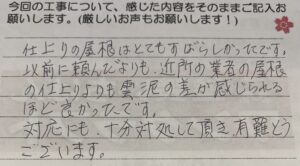 今回の工事について、感じた内容をそのままご記入お
願いします。(厳しいお声もお願いします！)
仕上りの屋根はとてもすばらしかったです。
以前に頼んだよりも、近所の業者の屋根
の仕上りよりも雲泥の差が感じられる
ほど良かったです。
対応にも、十分対処して頂き有難とう
ございます。